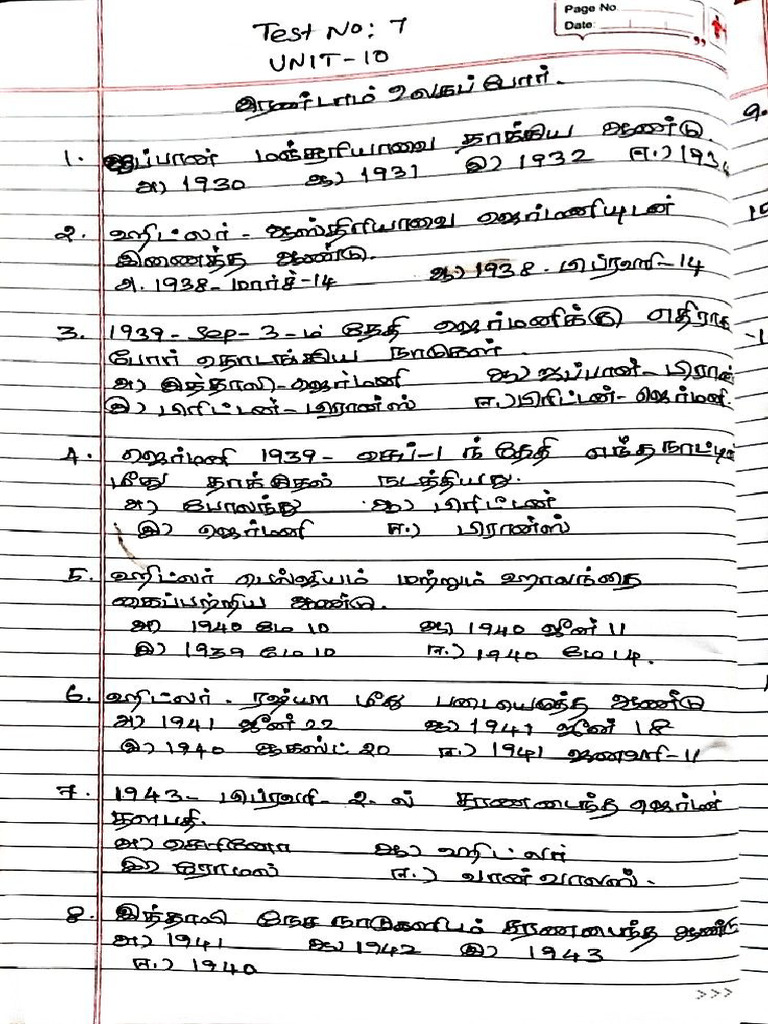 Page No.
Date:
Test No: 7
UNIT - 10
இரண்டாம் உலகப் போர்.
1. ஜப்பான் மஞ்சூரியாவை தாக்கிய ஆண்டு.
அ) 1930 ஆ) 1931 இ) 1932 ஈ.)
2. ஹிட்லர் - ஆஸ்திரியாவை ஜெர்மனியுடன்
இணைத்த ஆண்டு.
அ. 1938 - மார்ச் - 14 ஆ) 1938. பிப்ரவரி - 14
3. 1939 - Sep - 3 - ம் தேதி ஜெர்மனிக்கு எதிராக
போர் தொடங்கிய நாடுகள்.
அ) இத்தாலி - ஜெர்மனி ஆ) ஜப்பான் -
இ) பிரிட்டன் - பிரான்ஸ் ஈ.) பிரிட்டன் - ஜெர்மனி.
4. ஜெர்மனி 1939 - செப் - 1 ந் தேதி எந்த
மீது தாக்குதல் நடத்தியது.
அ) போலந்து ஆ) பிரிட்டன்
இ) ஜெர்மனி ஈ.) பிரான்ஸ்
5. ஹிட்லர் பெல்ஜியம் மற்றும் ஹாலந்தை
கைப்பற்றிய ஆண்டு.
அ) 1940 மே 10 ஆ) 1940 ஜீன் 11
இ) 1939 மே 10 ஈ.) 1940 மே 14.
6. ஹிட்லர். ரஷ்யா மீது படையெடுத்த ஆண்டு
அ) 1941 ஜீன் 22 ஆ) 1941 ஜீன் 18
இ) 1940 ஆகஸ்ட் 20 ஈ.) 1941 ஜனவரி - 11
7. 1943 - பிப்ரவரி - 2. ல் சரணடைந்த ஜெர்மன்
தளபதி.
அ) ஆ) ஹிட்லர்
இ) ரோமல் ஈ.) வான்
8. இத்தாலி நேச நாடுகளிடம் சரணடைந்த ஆண்டு
அ) 1941 ஆ) 1942 இ) 1943
ஈ.) 1940
>>>